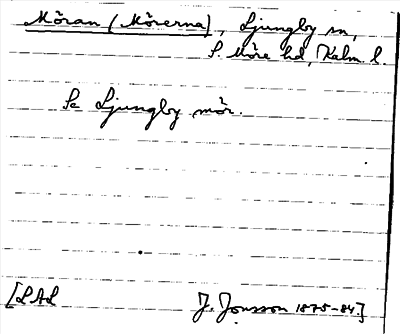 Möran (Mörerna), Ljungby sn,
S. Möre hd, Kalm. l.
Se Ljungby mör.
[LAL J. Jonsson 1875-84]